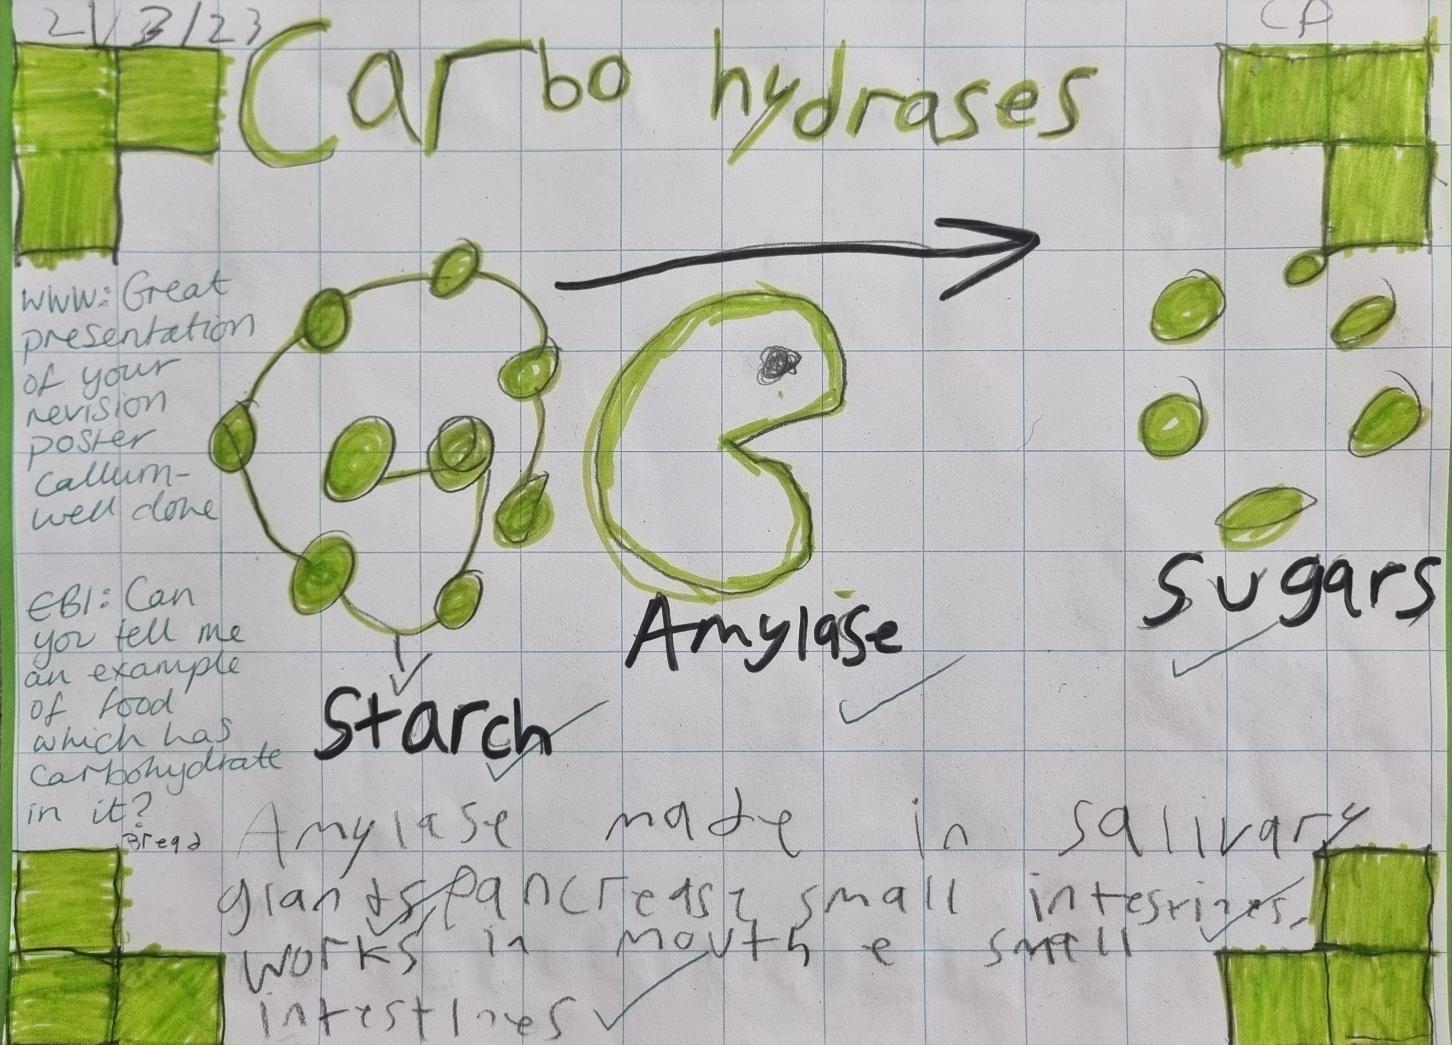 21/3/23
CP
Carbo hydrases
WWW: Great
presentation
of your
revision
poster
Callum-
well done
EBI: Can
you tell me
an example
of food
which has
carbohydrate
in it?
Bread
Starch
Amylase
Sugars
Amylase made in salivary
glants, Pancreas, small intestines,
works in mouth e small
intestines